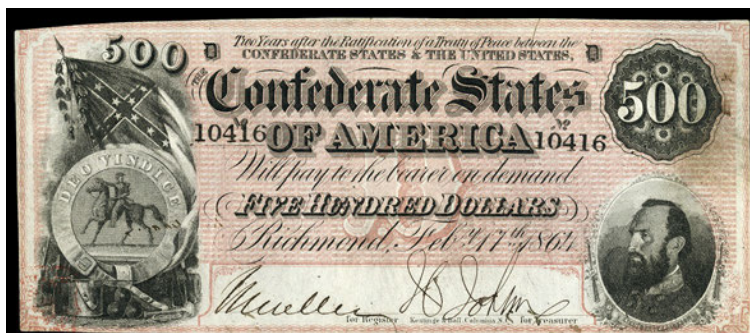 500
D Two Years after the Ratification of a Treaty of Peace between the D
CONFEDERATE STATES & THE UNITED STATES,
THE
Confederate States
500
No 10416 OF AMERICA No 10416
DEO VINDICE
Will pay to the bearer on demand
FIVE HUNDRED DOLLARS
Richmond, Feby. 17th 1864
for Register Keatinge & Ball, Columbia, S.C. for Treasurer